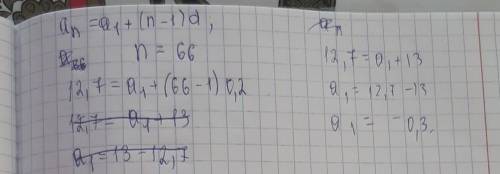 aₙ = a₁ + (n-1)d,
n = 66
12,7 = a₁ + (66-1) 0,2
12,7 = a₁ + 13
a₁ = 13 - 12,7
aₙ
12,7 = a₁ + 13
a₁ = 12,7 - 13
a₁ = -0,3.